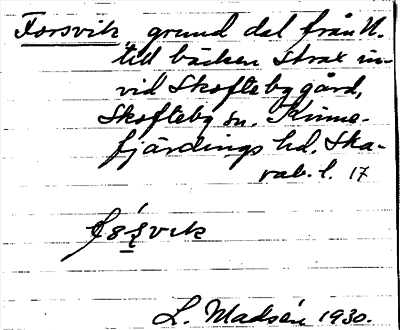 Forsvik, grund dal från N.
till bäcken strax in-
vid Skofteby gård,
Skofteby sn. Kinne-
fjärdings hd, Ska-
rab. l. 17
L. Madsén 1930.